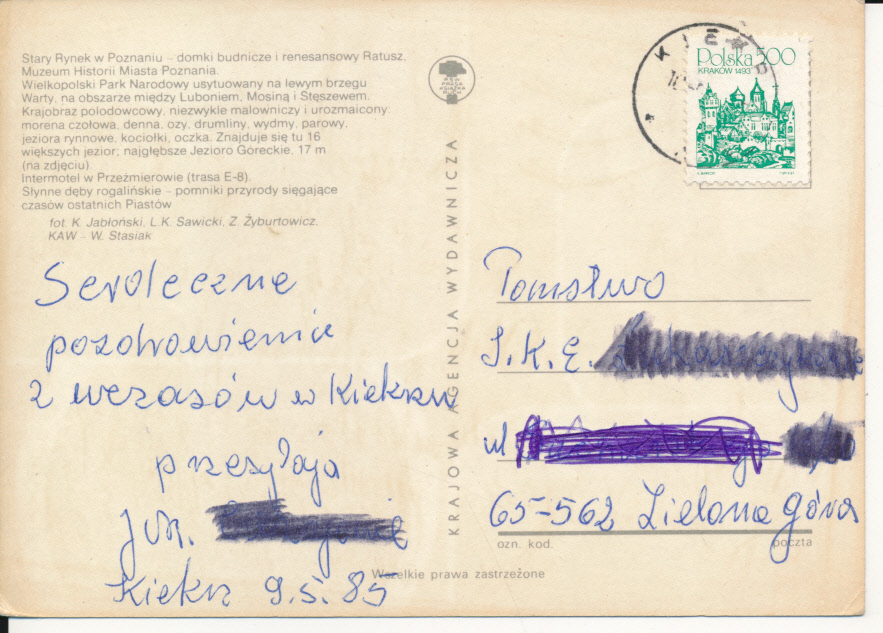 Stary Rynek w Poznaniu – domki budnicze i renesansowy Ratusz.
Muzeum Historii Miasta Poznania.
Wielkopolski Park Narodowy usytuowany na lewym brzegu
Warty, na obszarze między Luboniem, Mosiną i Stęszewem.
Krajobraz polodowcowy, niezwykle malowniczy i urozmaicony:
morena czołowa, denna, ozy, drumliny, wydmy, parowy,
jeziora rynnowe, kociołki, oczka. Znajduje się tu 16
większych jezior; najgłębsze Jezioro Góreckie, 17 m
(na zdjęciu)
Intermotel w Przeźmierowie (trasa E-8).
Słynne dęby rogalińskie – pomniki przyrody sięgające
czasów ostatnich Piastów
fot. K. Jabłoński, L.K. Sawicki, Z. Żyburtowicz.
KAW – W. Stasiak
Serdeczne
pozdrowienia
z wczasów w Kiekrzu
przesyłają
Kiekrz 9.5.85
KRAJOWA AGENCJA WYDAWNICZA
Polska 500
KRAKÓW 1493
Państwo
ul
65-562 Zielona Góra
ozn. kod.
poczta
Wszelkie prawa zastrzeżone